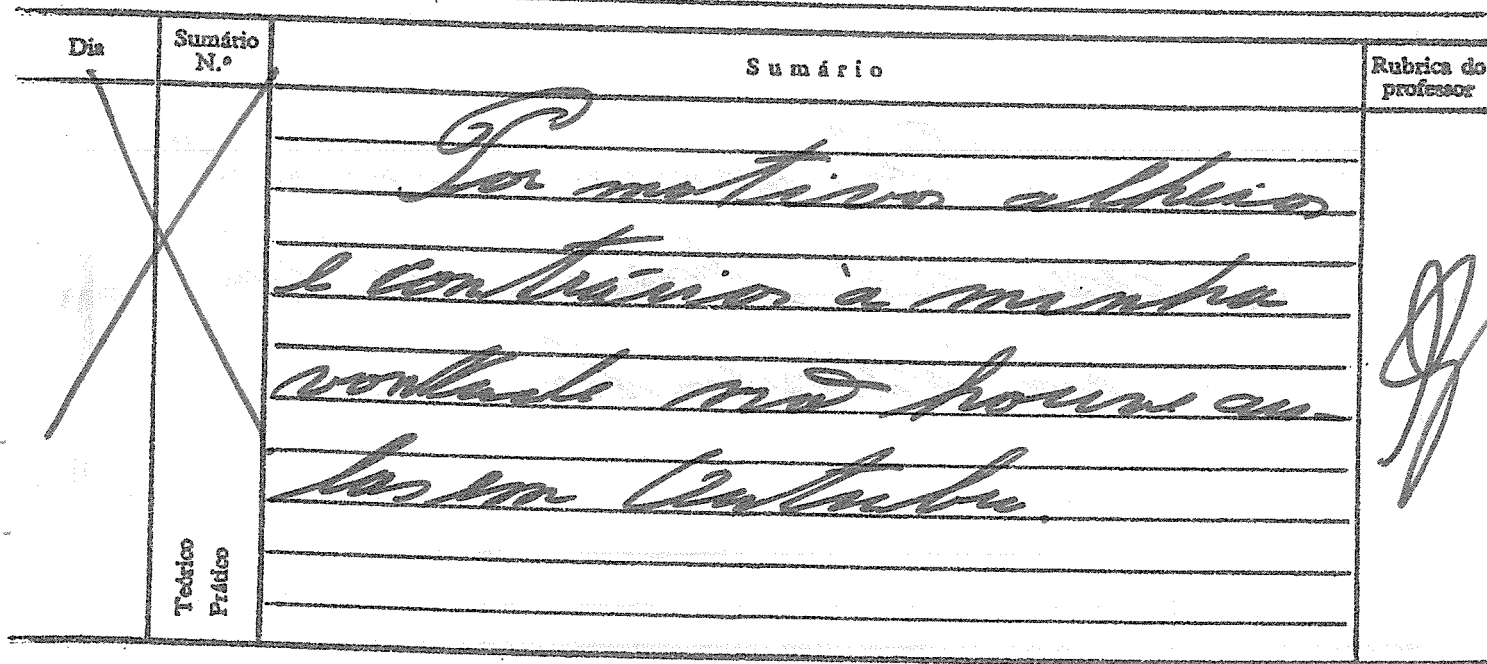 Dia
Sumário
N.º
Sumário
Rubrica do
professor
Por motivos alheios
e contrários à minha
vontade não houve au-
las em Outubro.
Teórico
Prático